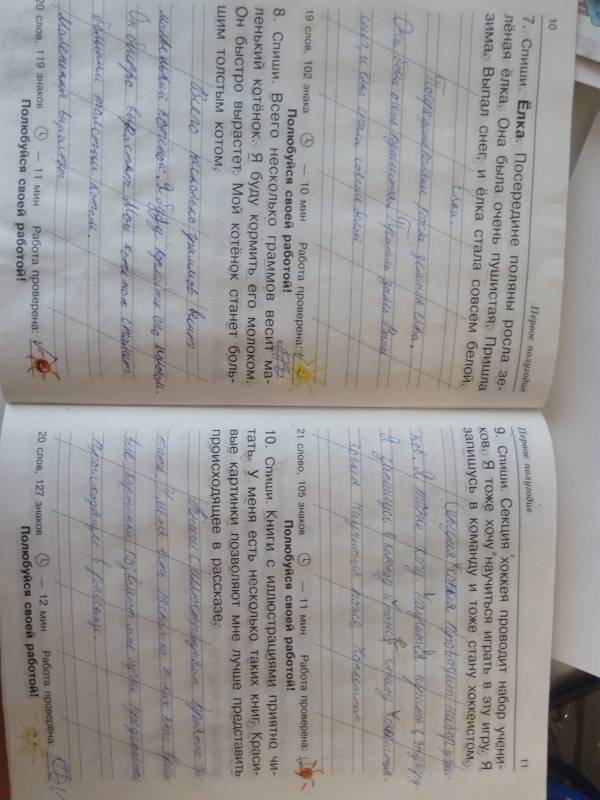 10
Первое полугодие
7. Спиши. Ёлка. Посередине поляны росла зе-
лёная ёлка. Она была очень пушистая. Пришла
зима. Выпал снег, и ёлка стала совсем белой.
Ёлка.
Посередине поляны росла зелёная ёлка.
Она была очень пушистая. Пришла зима. Выпал
снег, и ёлка стала совсем белой.
19 слов, 102 знака — 10 мин Работа проверена:
Полюбуйся своей работой!
8. Спиши. Всего несколько граммов весит ма-
ленький котёнок. Я буду кормить его молоком.
Он быстро вырастет. Мой котёнок станет боль-
шим толстым котом.
Всего несколько граммов весит
маленький котёнок. Я буду кормить его молоком.
Он быстро вырастет. Мой котёнок станет
большим толстым котом.
Маленький вырастет
20 слов, 119 знаков — 11 мин Работа проверена:
Полюбуйся своей работой!
Первое полугодие
11
9. Спиши. Секция хоккея проводит набор учени-
ков. Я тоже хочу научиться играть в эту игру. Я
запишусь в команду и тоже стану хоккеистом.
Секция хоккея проводит набор учени-
ков. Я тоже хочу научится играть в эту игру.
Я запишусь в команду и тоже стану хоккеистом.
21 слово, 105 знаков — 11 мин Работа проверена:
Полюбуйся своей работой!
10. Спиши. Книги с иллюстрациями приятно чи-
тать. У меня есть несколько таких книг. Краси-
вые картинки позволяют мне лучше представить
происходящее в рассказе.
Книги с иллюстрациями приятно чи-
тать. У меня есть несколько таких книг. Краси-
вые картинки позволяют мне лучше представить
происходящее в рассказе.
20 слов, 127 знаков — 12 мин Работа проверена:
Полюбуйся своей работой!